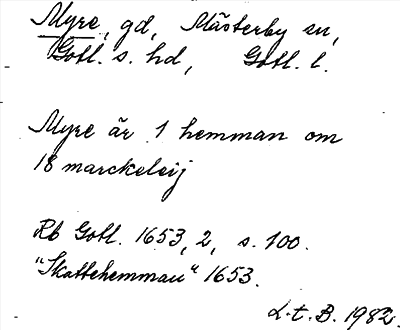 Myre, gd, Mästerby sn,
Gotl. s. hd, Gotl. l.
Myre är 1 hemman om
18 marckeleij
Rb Gotl. 1653, 2, s. 100.
"Skattehemman" 1653.
L.t.B. 1982.